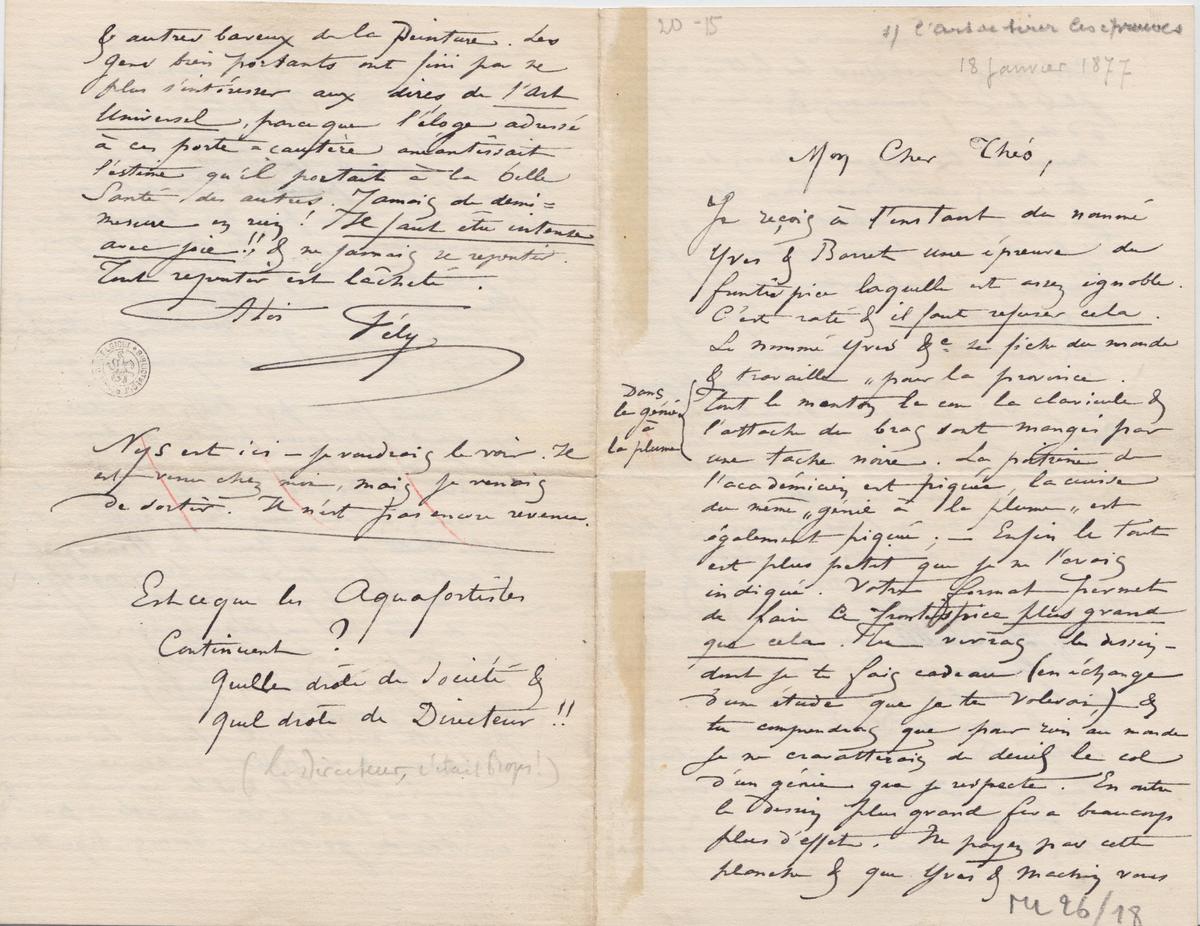 & autres baveux de la Peinture. Les
gens bien portants ont fini par ne
plus s'intéresser aux dires de l'Art
Universel, parceque l'éloge adressé
à ces porte-cautère anéantissait
l'estime qu'il portait à la belle
Santé des autres. Jamais de demi=
mesure en rien! Il faut être intense
avec joie!! & ne jamais se repentir.
Tout repentir est lâcheté.
Fély
Nys est ici – je voudrais le voir. Il
est venu chez moi, mais je venais
de sortir. Il n'est pas encore revenu.
Est ce que les Aquafortistes
Continuent?
Quelle drôle de Société &
quel drôle de Directeur!!
(Le Directeur, c'était !)
20-15
1) l'Art de tirer les épreuves
18 Janvier 1877
Mon Cher Théo,
Je reçois à l'instant du nommé
Yves & Barret une épreuve du
frontispice laquelle est assez ignoble.
C'est raté & il faut refuser cela.
Le nommé Yves &c se fiche du monde
& travaille „pour la province.
Dans
le génie
à
la plume
Tout le menton le cou la clavicule &
l'attache du bras sont mangés par
une tache noire. La poitrine de
l'academicien est piquée, la cuisse
du même „génie à la plume„ est
également piquée; – Enfin le tout
est plus petit que je ne l'avais
indiqué. Votre format permet
de faire le frontispice plus grand
que cela. Tu verras le dessin –
dont je te fais cadeau (en échange
d'une étude que je te volerai) &
tu comprendras que pour rien au monde
je ne cravatterais de deuil le col
d'un génie que je respecte. En outre
le dessin plus grand fera beaucoup
plus d'effet. Ne payez pas cette
planche & que Yves & machin vous
MU 26/18